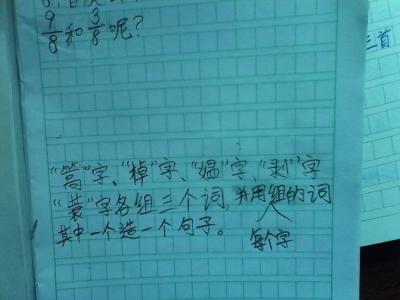 9/8和3/8呢?
三首
“篙”字、“棹”字、“媪”字、“剥”字
“蓑”字各组三个词,并用组的词
其中一个造一个句子。
每个字